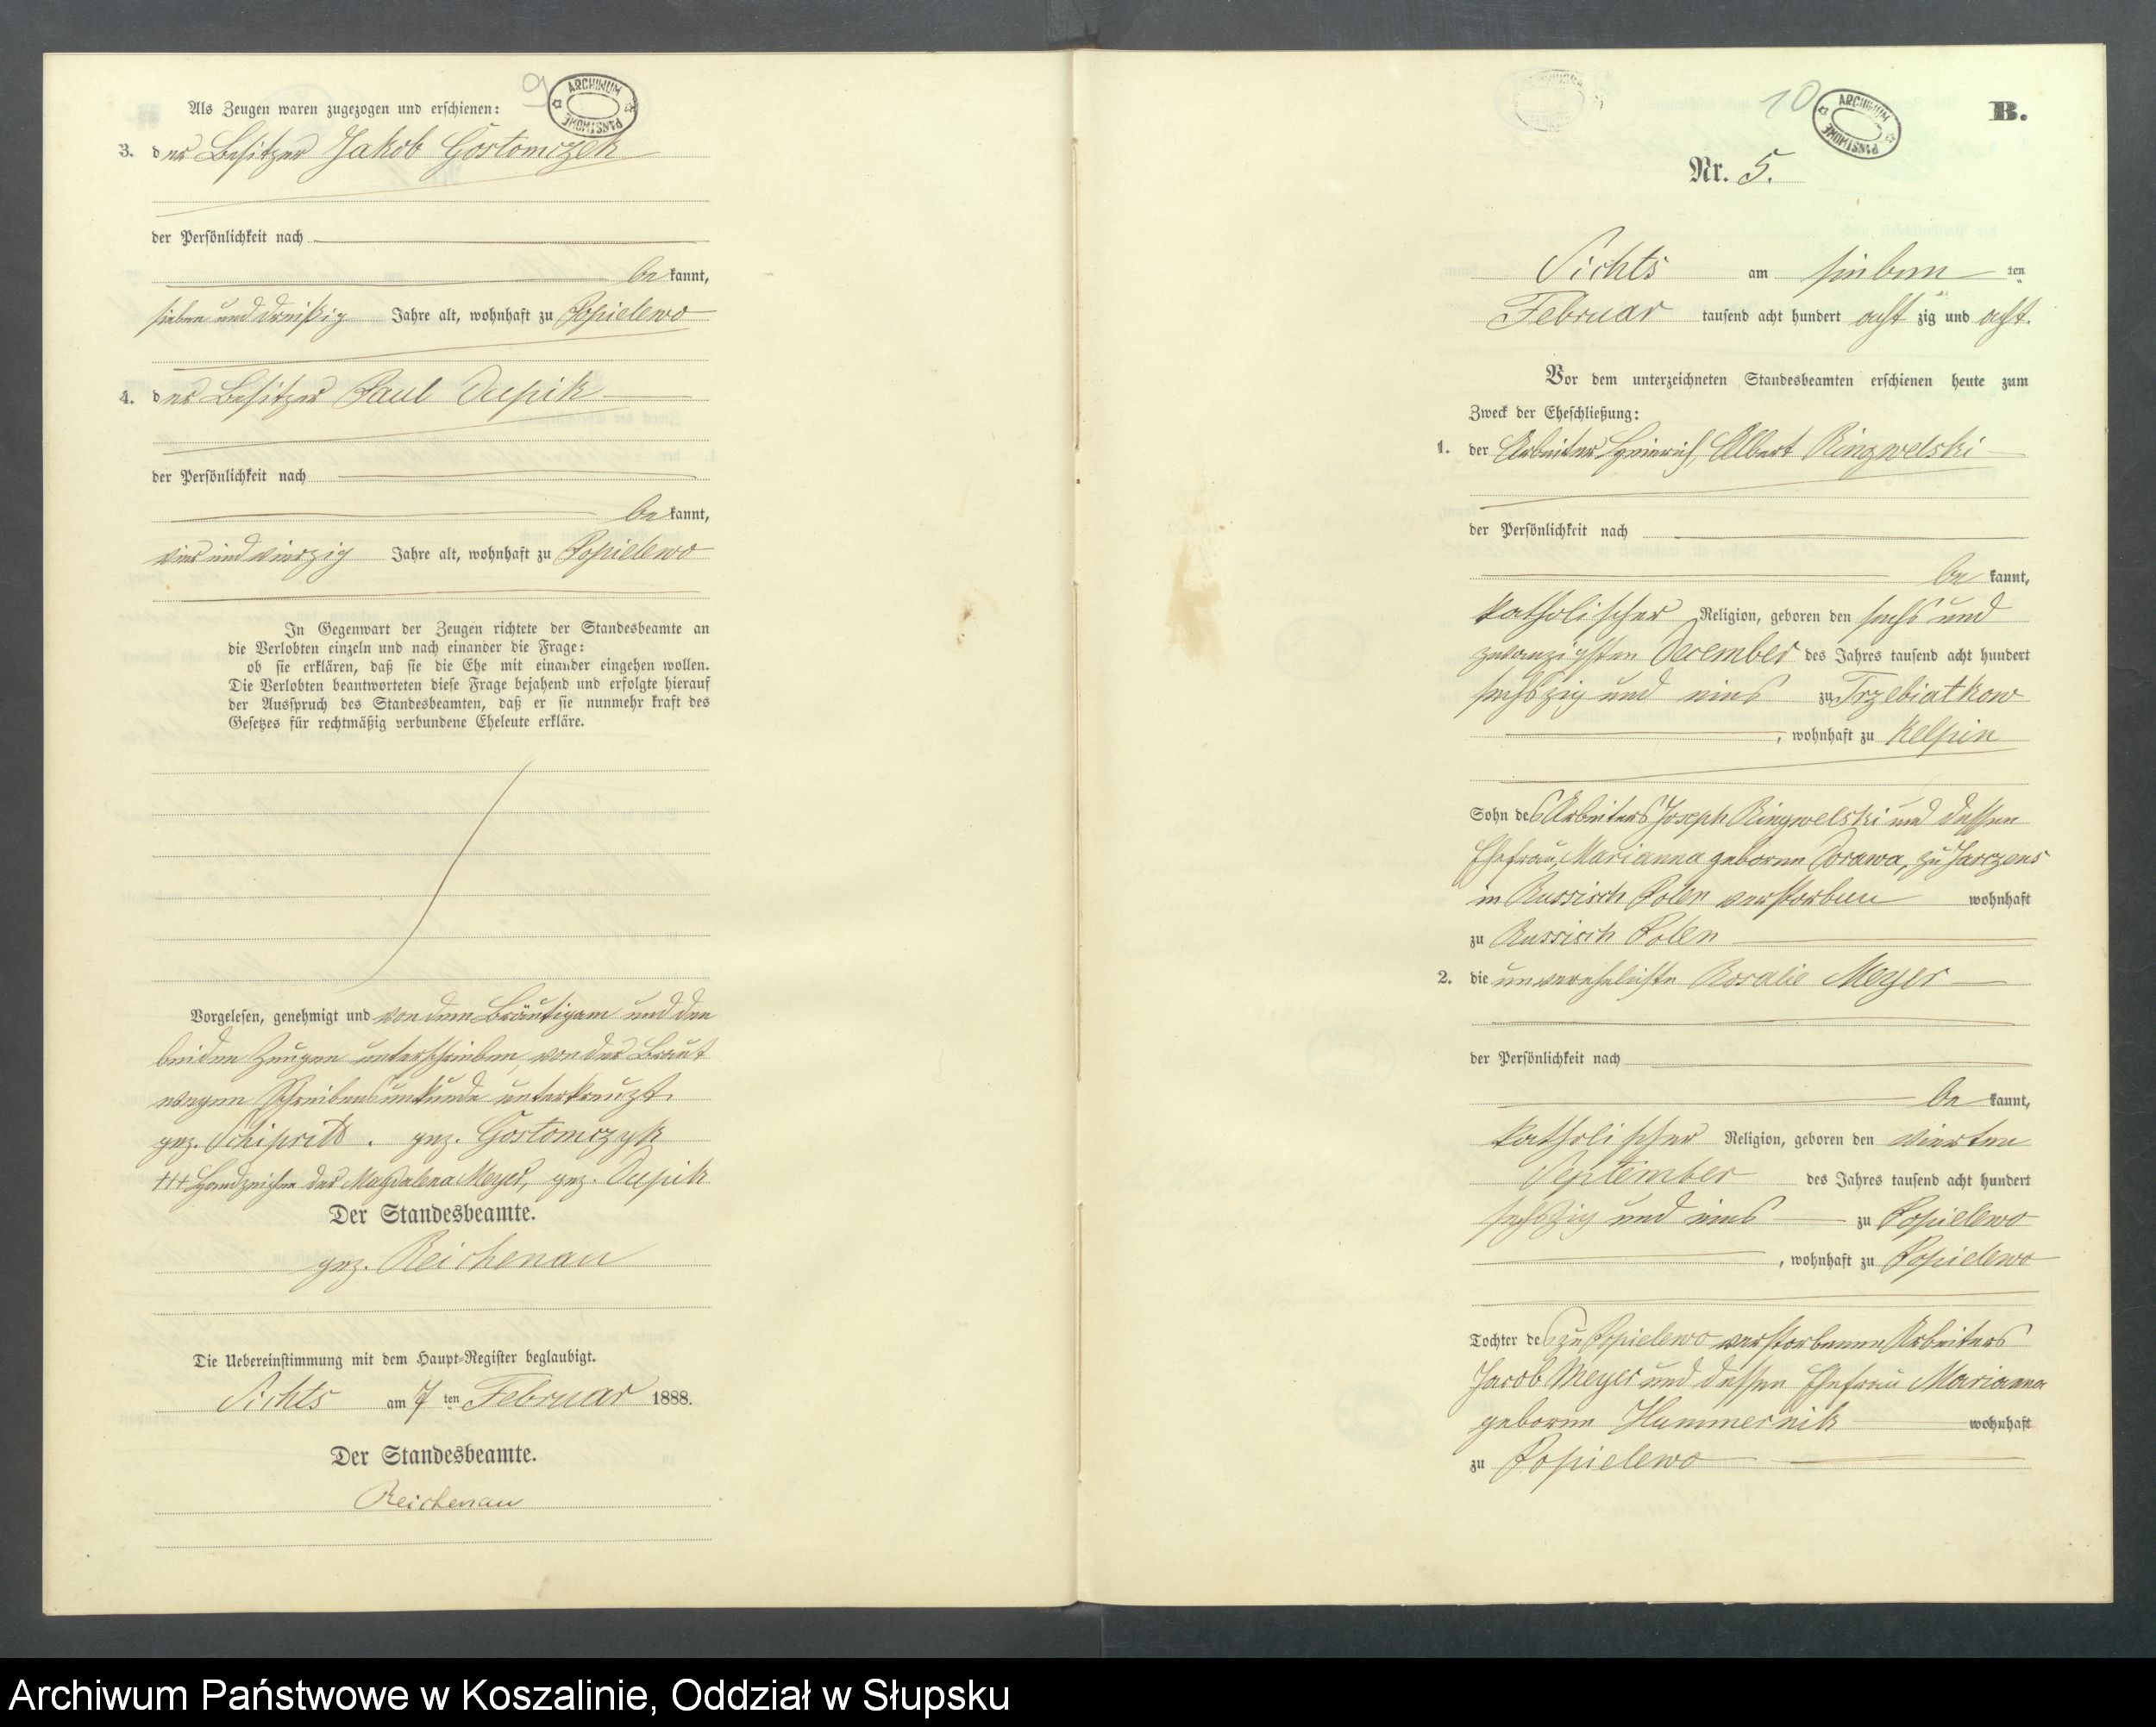 9
ARCHIWUM PAŃSTWOWE
Als Zeugen waren zugezogen und erschienen:
3. der Besitzer Jakob Gostomczek
der Persönlichkeit nach
be kannt,
sieben und dreißig Jahre alt, wohnhaft zu Popielewo
4. der Besitzer Paul
der Persönlichkeit nach
be kannt,
vier und vierzig Jahre alt, wohnhaft zu Popielewo
In Gegenwart der Zeugen richtete der Standesbeamte an
die Verlobten einzeln und nach einander die Frage:
ob sie erklären, daß sie die Ehe mit einander eingehen wollen.
Die Verlobten beantworteten diese Frage bejahend und erfolgte hierauf
der Ausspruch des Standesbeamten, daß er sie nunmehr kraft des
Gesetzes für rechtmäßig verbundene Eheleute erkläre.
Vorgelesen, genehmigt und von dem Bräutigam und den
beiden Zeugen unterschrieben, von der Braut
wegen Schreibensunkunde unterkreuzt.
gez. gez. Gostomczyk
+++ Handzeichen der Magdalena Meyer, gez.
Der Standesbeamte.
gez. Reichenau
Die Uebereinstimmung mit dem Haupt-Register beglaubigt.
Sichts am 7 ten Februar 1888.
Der Standesbeamte.
Reichenau
10
ARCHIWUM PAŃSTWOWE
B.
Nr. 5.
Sichts am sieben ten
Februar tausend acht hundert acht zig und acht.
Vor dem unterzeichneten Standesbeamten erschienen heute zum
Zweck der Eheschließung:
1. der Arbeiter Heinrich Albert Ringwelski
der Persönlichkeit nach
be kannt,
katholischer Religion, geboren den sechs und
zwanzigsten December des Jahres tausend acht hundert
sechszig und eins zu Trzebiatkow
, wohnhaft zu Kelpin
Sohn des Arbeiters Joseph Ringwelski und dessen
Ehefrau, Marianna geborne zu
in Russisch Polen verstorben wohnhaft
zu Russisch Polen
2. die unverehelichte Rosalie Meyer
der Persönlichkeit nach
be kannt,
katholischer Religion, geboren den vierten
September des Jahres tausend acht hundert
sechszig und eins zu Popielewo
, wohnhaft zu Popielewo
Tochter des zu Popielewo verstorbenen Arbeiters
Jacob Meyer und dessen Ehefrau Marianna
geborne Hammernik wohnhaft
zu Popielewo
Archiwum Państwowe w Koszalinie, Oddział w Słupsku